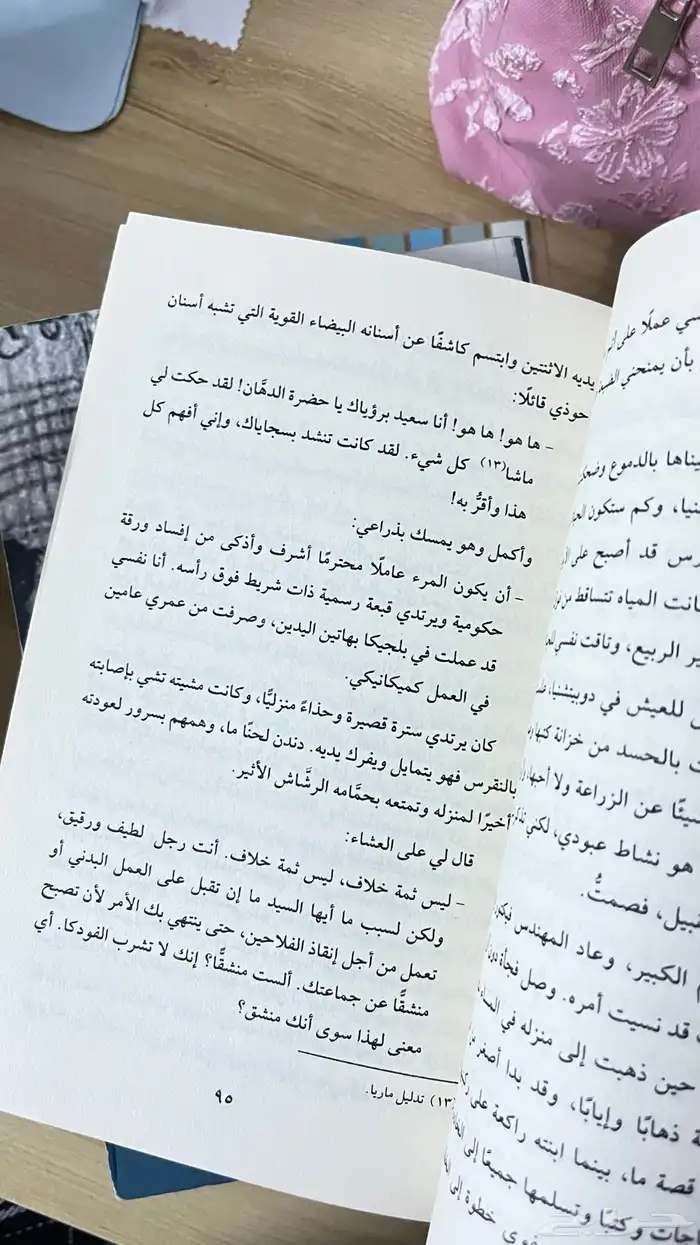 يديه الاثنتين وابتسم كاشفًا عن أسنانه البيضاء القوية التي تشبه أسنان
حوذي قائلًا:
– ها هو! ها هو! أنا سعيد برؤياك يا حضرة الدهَّان! لقد حكت لي
ماشا(١٣) كل شيء. لقد كانت تنشد بسجاياك، وإني أفهم كل
هذا وأقرُّ به!
وأكمل وهو يمسك بذراعي:
– أن يكون المرء عاملًا محترمًا أشرف وأذكى من إفساد ورقة
حكومية ويرتدي قبعة رسمية ذات شريط فوق رأسه. أنا نفسي
قد عملت في بلجيكا بهاتين اليدين، وصرفت من عمري عامين
في العمل كميكانيكي.
كان يرتدي سترة قصيرة وحذاءً منزليًّا، وكانت مشيته تشي بإصابته
بالنقرس فهو يتمايل ويفرك يديه. دندن لحنًا ما، وهمهم بسرور لعودته
أخيرًا لمنزله وتمتعه بحمَّامه الرشَّاش الأثير.
قال لي على العشاء:
– ليس ثمة خلاف، ليس ثمة خلاف. أنت رجل لطيف ورقيق،
ولكن لسبب ما أيها السيد ما إن تقبل على العمل البدني أو
تعمل من أجل إنقاذ الفلاحين، حتى ينتهي بك الأمر لأن تصبح
منشقًّا عن جماعتك. ألست منشقًّا؟ إنك لا تشرب الفودكا. أي
معنى لهذا سوى أنك منشق؟
(١٣) تدليل ماريا.
٩٥
سي عملًا على
بأن يمنحني
يناها بالدموع
نيا، وكم ستكون
رس قد أصبح على
كانت المياه تتساقط من
ير الربيع، وتاقت نفسي
للعيش في دوبيتشنيا،
بالحسد من خزانة كتبها
شيئًا عن الزراعة ولا أحبها،
هو نشاط عبودي، لكني
قبيل، فصمتُّ.
الكبير، وعاد المهندس
قد نسيت أمره. وصل فجأة دون
حين ذهبت إلى منزله في
ذهابًا وإيابًا، وقد بدا أصغر
قصة ما، بينما ابنته راكعة على
وكتبًا وتسلمها جميعًا إلى
خطوة إلى